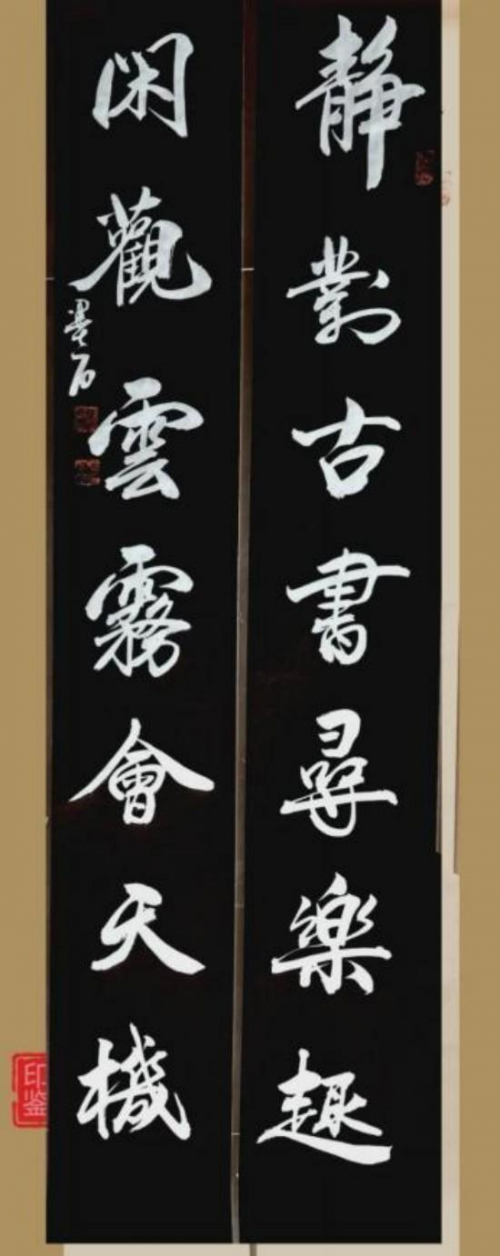 靜對古書尋樂趣
閑觀雲霧會天機
墨石
印鉴